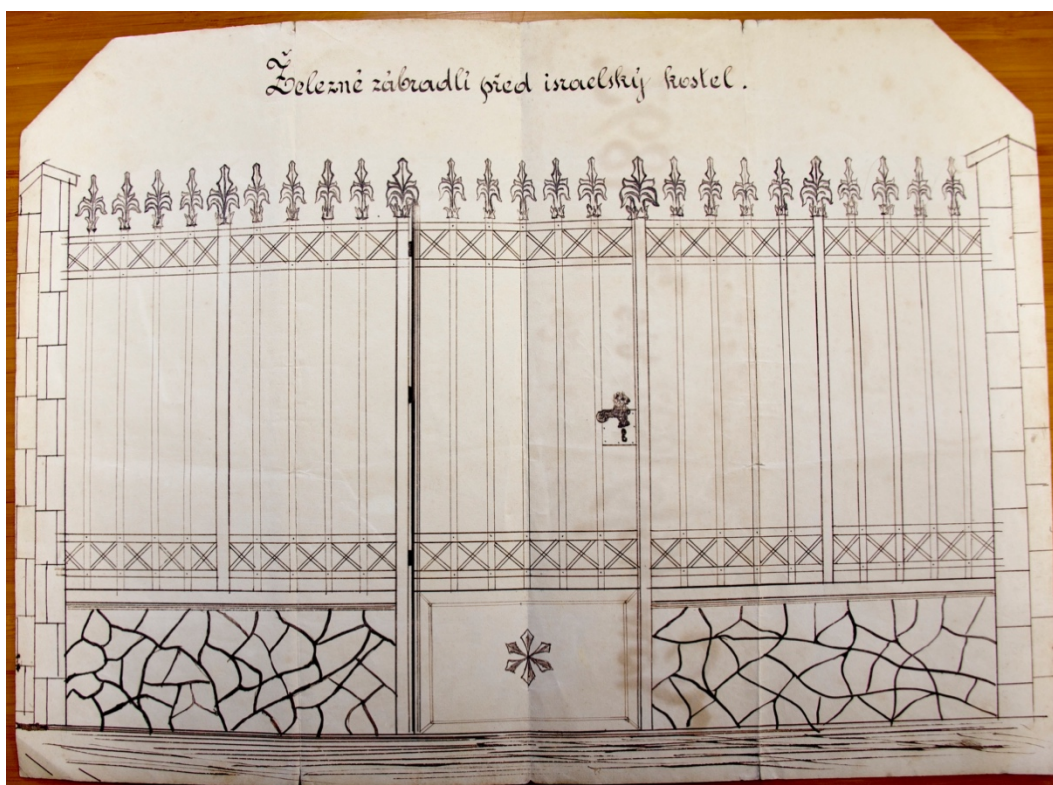 Železné zábradlí před israelský kostel.